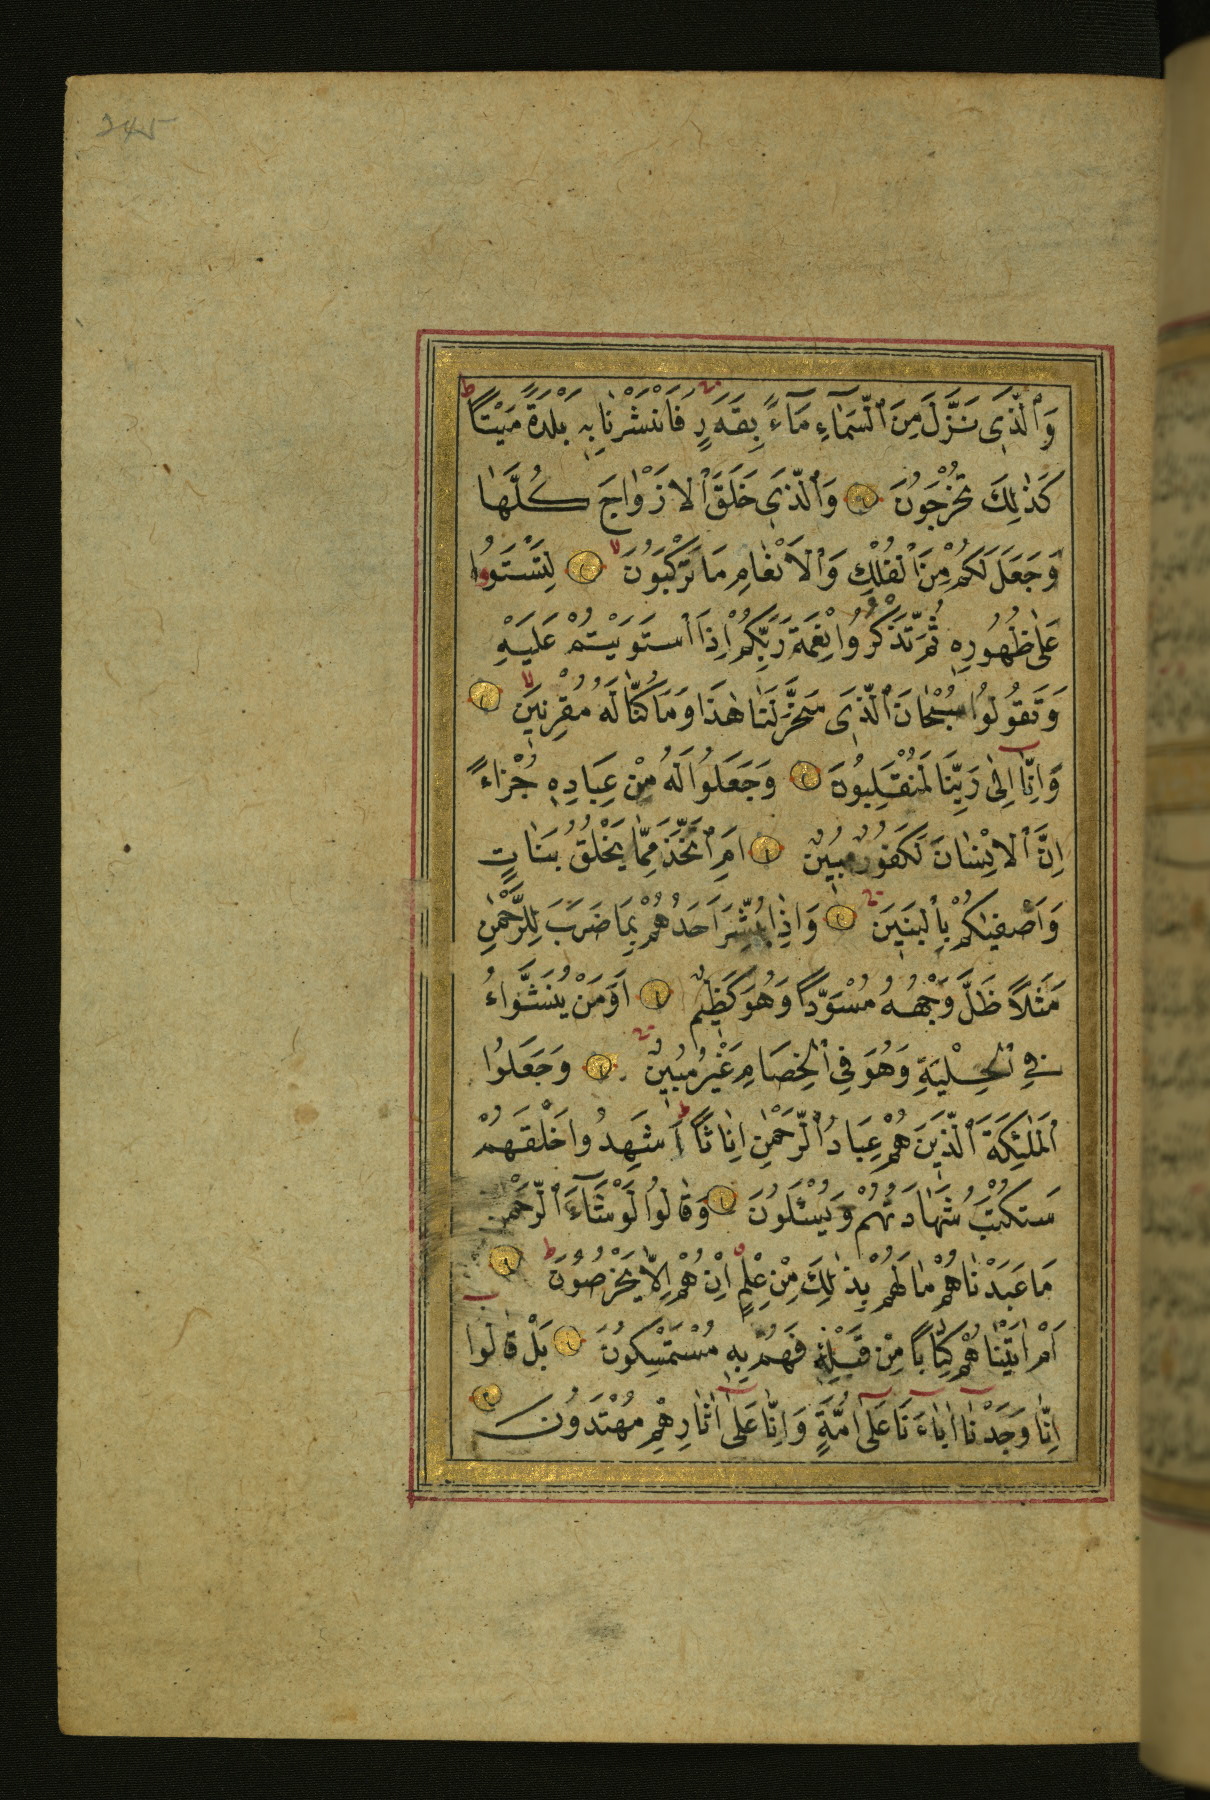 245
وَٱلَّذِى نَزَّلَ مِنَ ٱلسَّمَآءِ مَآءً بِقَدَرٍ فَاَنْشَرْنَا بِهٖ بَلْدَةً مَيْتًا
كَذٰلِكَ تُخْرَجُونَ وَٱلَّذِى خَلَقَ ٱلْاَزْوَاجَ كُلَّهَا
وَجَعَلَ لَكُمْ مِنَ ٱلْفُلْكِ وَٱلْاَنْعَامِ مَا تَرْكَبُونَ لِتَسْتَوُوا
عَلٰى ظُهُورِهٖ ثُمَّ تَذْكُرُوا نِعْمَةَ رَبِّكُمْ اِذَا ٱسْتَوَيْتُمْ عَلَيْهِ
وَتَقُولُوا سُبْحَانَ ٱلَّذِى سَخَّرَ لَنَا هٰذَا وَمَا كُنَّا لَهُ مُقْرِنِينَ
وَاِنَّا اِلٰى رَبِّنَا لَمُنْقَلِبُونَ وَجَعَلُوا لَهُ مِنْ عِبَادِهٖ جُزْءًا
اِنَّ ٱلْاِنْسَانَ لَكَفُورٌ مُبِينٌ اَمِ ٱتَّخَذَ مِمَّا يَخْلُقُ بَنَاتٍ
وَاَصْفٰيكُمْ بِٱلْبَنِينَ وَاِذَا بُشِّرَ اَحَدُهُمْ بِمَا ضَرَبَ لِلرَّحْمٰنِ
مَثَلًا ظَلَّ وَجْهُهُ مُسْوَدًّا وَهُوَ كَظِيمٌ اَوَمَنْ يُنَشَّؤُاءُ
فِى ٱلْحِلْيَةِ وَهُوَ فِى ٱلْخِصَامِ غَيْرُ مُبِينٍ وَجَعَلُوا
ٱلْمَلٰئِكَةَ ٱلَّذِينَ هُمْ عِبَادُ ٱلرَّحْمٰنِ اِنَاثًا اَشَهِدُوا خَلْقَهُمْ
سَتُكْتَبُ شَهَادَتُهُمْ وَيُسْئَلُونَ وَقَالُوا لَوْ شَآءَ ٱلرَّحْمٰنُ
مَا عَبَدْنَاهُمْ مَا لَهُمْ بِذٰلِكَ مِنْ عِلْمٍ اِنْ هُمْ اِلَّا يَخْرُصُونَ
اَمْ اٰتَيْنَاهُمْ كِتَابًا مِنْ قَبْلِهٖ فَهُمْ بِهٖ مُسْتَمْسِكُونَ بَلْ قَالُوا
اِنَّا وَجَدْنَا اٰبَاءَنَا عَلٰى اُمَّةٍ وَاِنَّا عَلٰى اٰثَارِهِمْ مُهْتَدُونَ